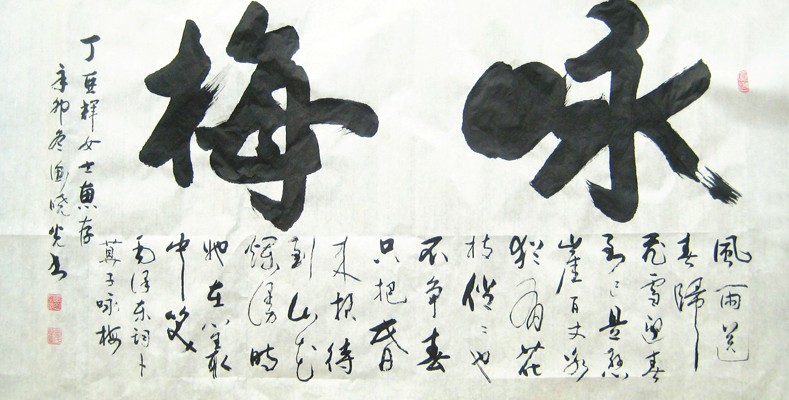 咏梅
風雨送
春歸
飛雪迎春
到已是懸
崖百丈冰
犹有花
枝俏〻也
不争春
只把春
来报待
到山花
爛漫時
她在丛
中笑
毛泽东詞卜
算子咏梅
丁亜輝女士惠存
辛卯冬晓光书